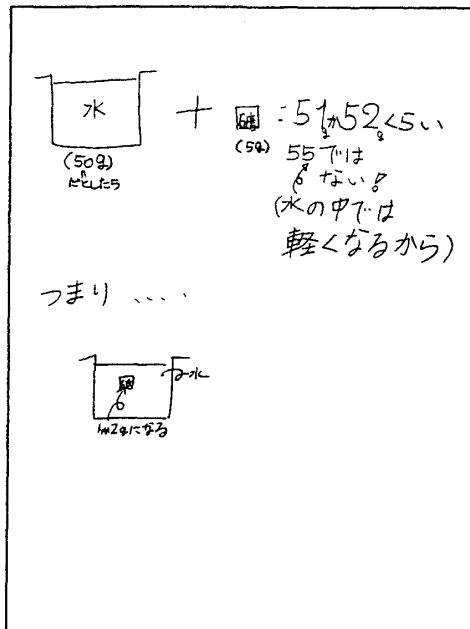 水
(50g)
だとしたら
+
糖 : 51gか52gくらい
(5g)
55gでは
ない!
(水の中では
軽くなるから)
つまり ‥‥
水
糖
1か2gになる